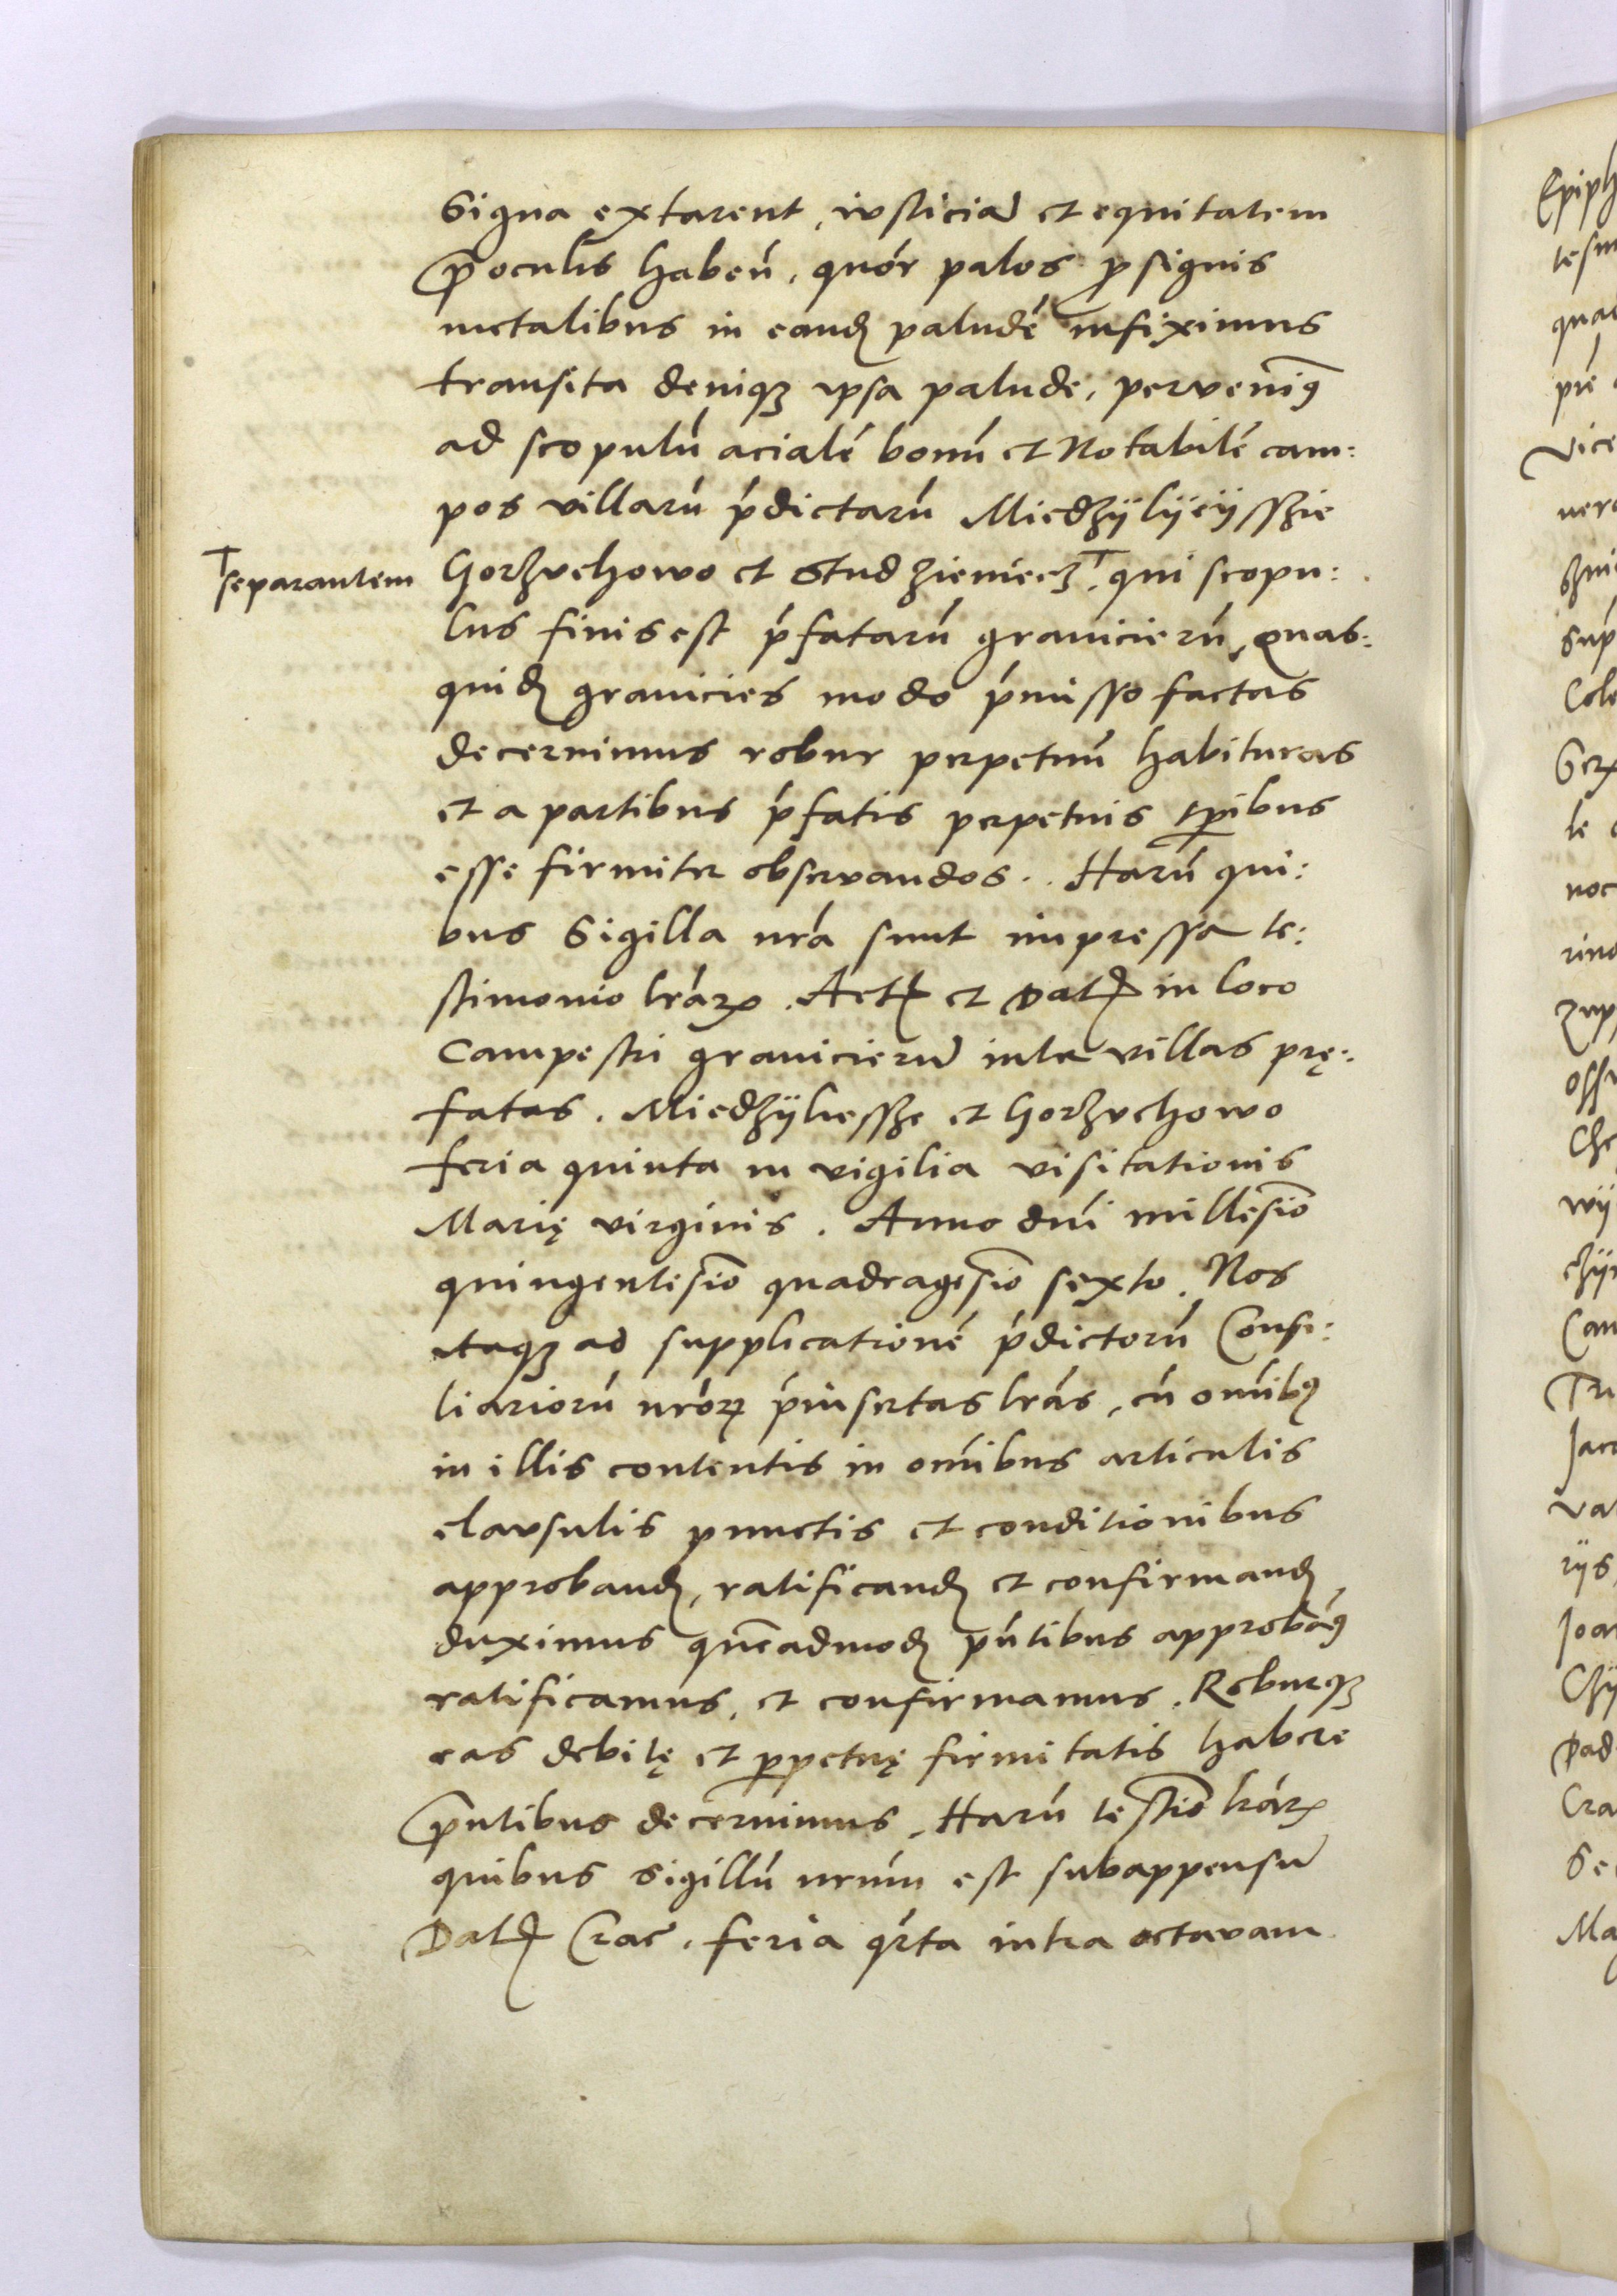 Signa extarent, iusticiā et equitatem
p̄ oculis habeń, quór palos p signis
metalibus in eand palude̅ infiximus
transita deniqȝ ipsa palude, pervenim9
ad scopulū acialē bonū et Notabilē cam:
pos villarū ṕdictarū Miedzÿlÿeÿsszie
Gorzuchowo et Studzieniecz⸆, qui scopu:
⸆separantem
lus finis est ṕfatarū granicierū, quas:
quid granicies modo ṕmisso factas
decernimus robur perpetuū habituras
et a partibus ṕfatis perpetuis tp̄ibus
esse firmiter observandos. Harū qui:
bus Sigilla nr̄a sunt impressa te:
stimonio lr̄aꝝ. Act et Dat in loco
Campestri granicierū inter villas prę:
fatas. Miedzÿliessze et Gorzuchowo
feria quinta in vigilia visitationis
Marię virginis. Anno dn̄i millesīo
quingentesīo quadragesīo sexto. Nos
itaqȝ ad supplicationē ṕdictorū Consi:
liariorū nr̄oꝝ ṕinsertas lr̄as, cū om̄ib9
in illis contentis in om̄ibus articulis
clausulis punctis et conditionibus
approband, ratificand et confirmand
duximus quēadmod pn̄tibus approbam9
ratificamus, et confirmamus. Roburqȝ
eas debitę et ꝑpetuę firmitatis habere
p̄ntibus decernimus, Harū testīo lr̄aꝝ
quibus sigillū nr̄um est subappensū
Dat Crac̄. feria qŕta intra octavam